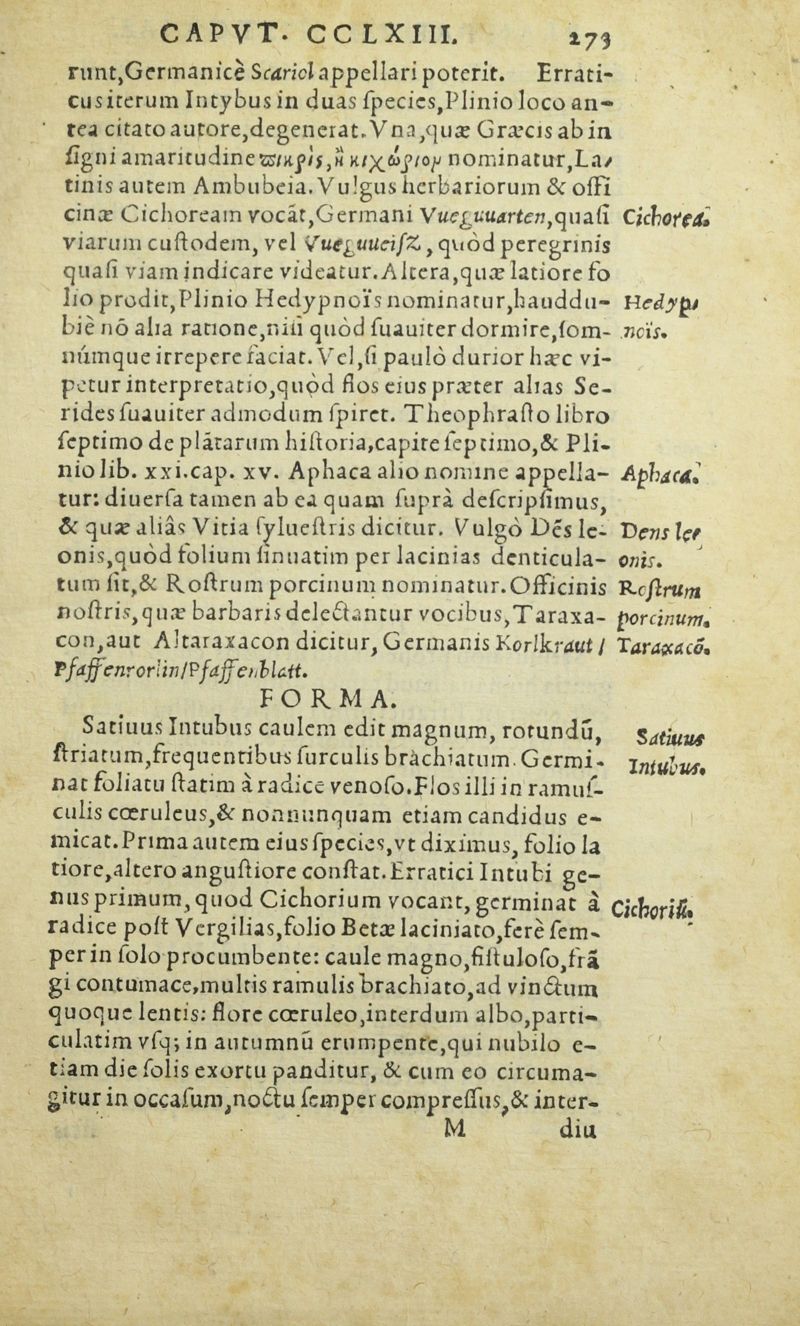 CAPVT. CCLXIII. 273
runt,Germanicè Scariol appellari poterit. Errati-
cus iterum Intybus in duas ſpecies,Plinio loco an-
tea citato autore,degenerat.Vna,quæ Græcis ab in
ſigni amaritudine πικρὶς,ἢ κιχώριον nominatur,La-
tinis autem Ambubeia.Vulgus herbariorum & offi
cinæ Cichoream vocāt,Germani Vueguuarten,quaſi Cichorea.
viarum cuſtodem, vel Vueguueiſz, quòd peregrinis
quaſi viam indicare videatur.Altera,quæ latiore fo
lio prodit,Plinio Hedypnoïs nominatur,hauddu- Hedyp-
biè nō alia ratione,niſi quòd ſuauiter dormire,ſom- noïs.
númque irrepere faciat.Vel,ſi paulò durior hæc vi-
petur interpretatio,quòd flos eius præter alias Se-
rides ſuauiter admodum ſpiret. Theophraſto libro
ſeptimo de plātarum hiſtoria,capite ſeptimo,& Pli-
nio lib. xxi.cap. xv. Aphaca alio nomine appella- Aphaca.
tur: diuerſa tamen ab ea quam ſuprà deſcripſimus,
& quæ aliâs Vitia ſylueſtris dicitur. Vulgò Dēs le- Dens leo
onis,quòd folium ſinuatim per lacinias denticula- onis.
tum ſit,& Roſtrum porcinum nominatur.Officinis Roſtrum
noſtris,quæ barbaris delectantur vocibus,Taraxa- porcinum.
con,aut Altaraxacon dicitur, Germanis Korlkraut / Taraxacō.
Pfaffenrorlin/Pfaffenblatt.
FORMA.
Satiuus Intubus caulem edit magnum, rotundū, Satiuus
ſtriatum,frequentibus furculis brachiatum.Germi- Intubus.
nat foliatu ſtatim à radice venoſo.Flos illi in ramuſ-
culis cœruleus,& nonnunquam etiam candidus e-
micat.Prima autem eius ſpecies,vt diximus, folio la
tiore,altero anguſtiore conſtat.Erratici Intubi ge-
nus primum,quod Cichorium vocant,germinat à Cichoriū.
radice poſt Vergilias,folio Betæ laciniato,ferè ſem-
per in ſolo procumbente: caule magno,fiſtuloſo,frā
gi contumace,multis ramulis brachiato,ad vinctum
quoque lentis: flore cœruleo,interdum albo,parti-
culatim vſq; in autumnū erumpente,qui nubilo e-
tiam die ſolis exortu panditur, & cum eo circuma-
gitur in occaſum,noctu ſemper compreſſus,& inter-
M diu